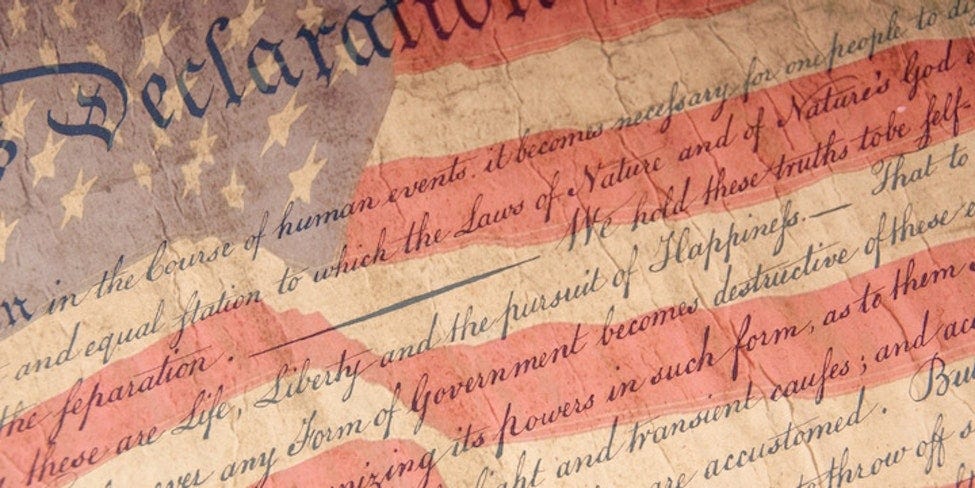 Declaration
in the Course of human events. it becomes neceſsary for one people to
and equal ſtation to which the Laws of Nature and of Nature's God
the ſeparation. —— We hold these truths to be ſelf-
these are Life, Liberty and the pursuit of Happineſs. — That to
ever any Form of Government becomes destructive of these
nizing its powers in such form, as to them
ight and transient cauſes; and acc
are accustomed. Bu
to throw off s